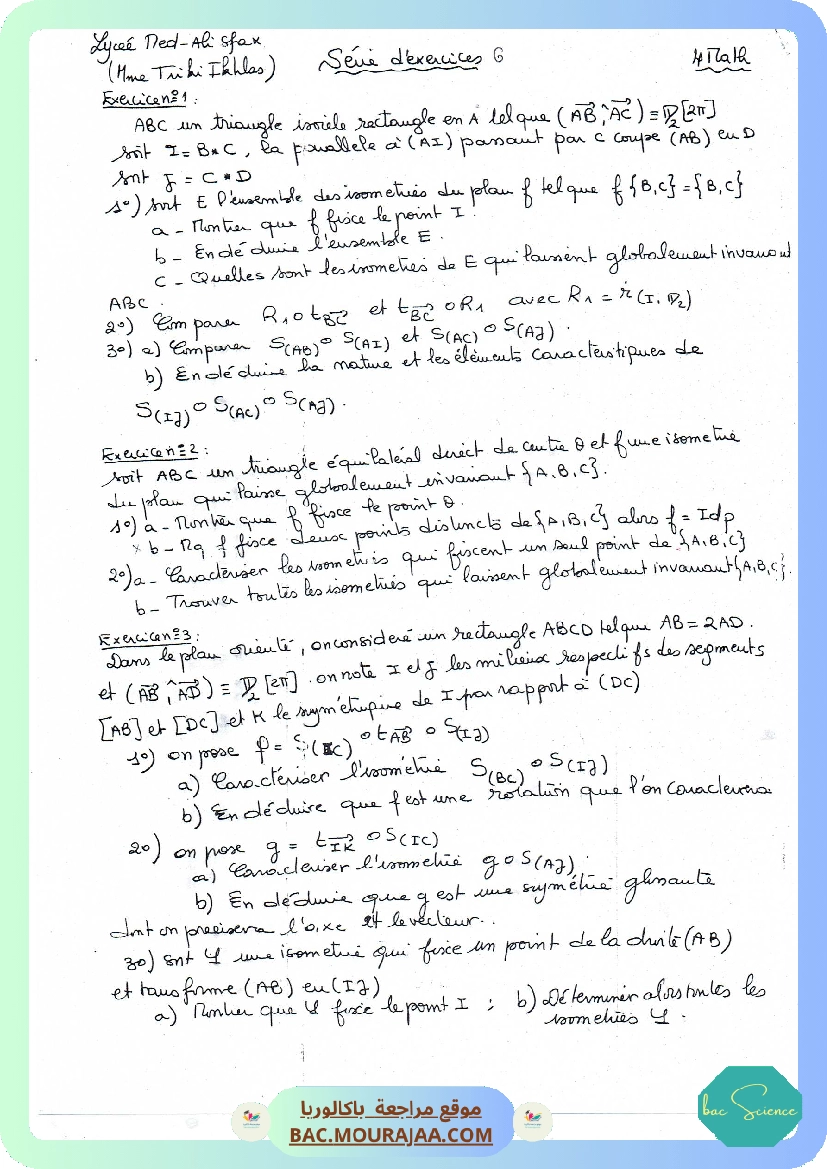 Lycée Med-Ali Sfax
(Mme Triki Ikhlas) Série d'exercices 6 4 Math
Exercice n°1 :
ABC un triangle isocèle rectangle en A tel que (AB^,AC) ≡ π/2 [2π]
soit I = B*C, la parallèle à (AI) passant par C coupe (AB) en D
soit J = C*D
1°) soit E l'ensemble des isometries du plan f tel que f{B,C} = {B,C}
a - Montrer que f fixe le point I.
b - En déduire l'ensemble E.
c - Quelles sont les isometries de E qui laissent globalement invariant
ABC.
2°) Comparer R₁ o t_BC et t_BC o R₁ avec R₁ = r(I, π/2)
3°) a) Comparer S(AB) o S(AI) et S(AC) o S(AJ).
b) En déduire la nature et les éléments caractéristiques de
S(IJ) o S(AC) o S(AJ).
Exercice n°2 :
soit ABC un triangle équilatéral direct de centre O et f une isometrie
du plan qui laisse globalement invariant {A,B,C}.
1°) a - Montrer que f fixe le point O.
x b - Mq f fixe deux points distincts de {A,B,C} alors f = Idp
2°) a - Caractériser les isometries qui fixent un seul point de {A,B,C}
b - Trouver toutes les isometries qui laissent globalement invariant {A,B,C}.
Exercice n°3 :
Dans le plan orienté, on considère un rectangle ABCD tel que AB = 2AD.
et (AB^,AD) ≡ π/2 [2π]. on note I et J les milieux respectifs des segments
[AB] et [DC] et K le symétrique de I par rapport à (DC)
1°) on pose f = S(BC) o t_AB o S(IJ)
a) Caractériser l'isométrie S(BC) o S(IJ)
b) En déduire que f est une rotation que l'on caracterisera
2°) on pose g = t_IK o S(IC)
a) Caractériser l'isometrie g o S(AJ).
b) En déduire que g est une symétrie glissante
dont on precisera l'axe et le vecteur..
3°) soit φ une isometrie qui fixe un point de la droite (AB)
et transforme (AB) en (IJ)
a) Montrer que φ fixe le point I ; b) Déterminer alors toutes les
isometries φ.
موقع مراجعة باكالوريا
BAC.MOURAJAA.COM
bac Science